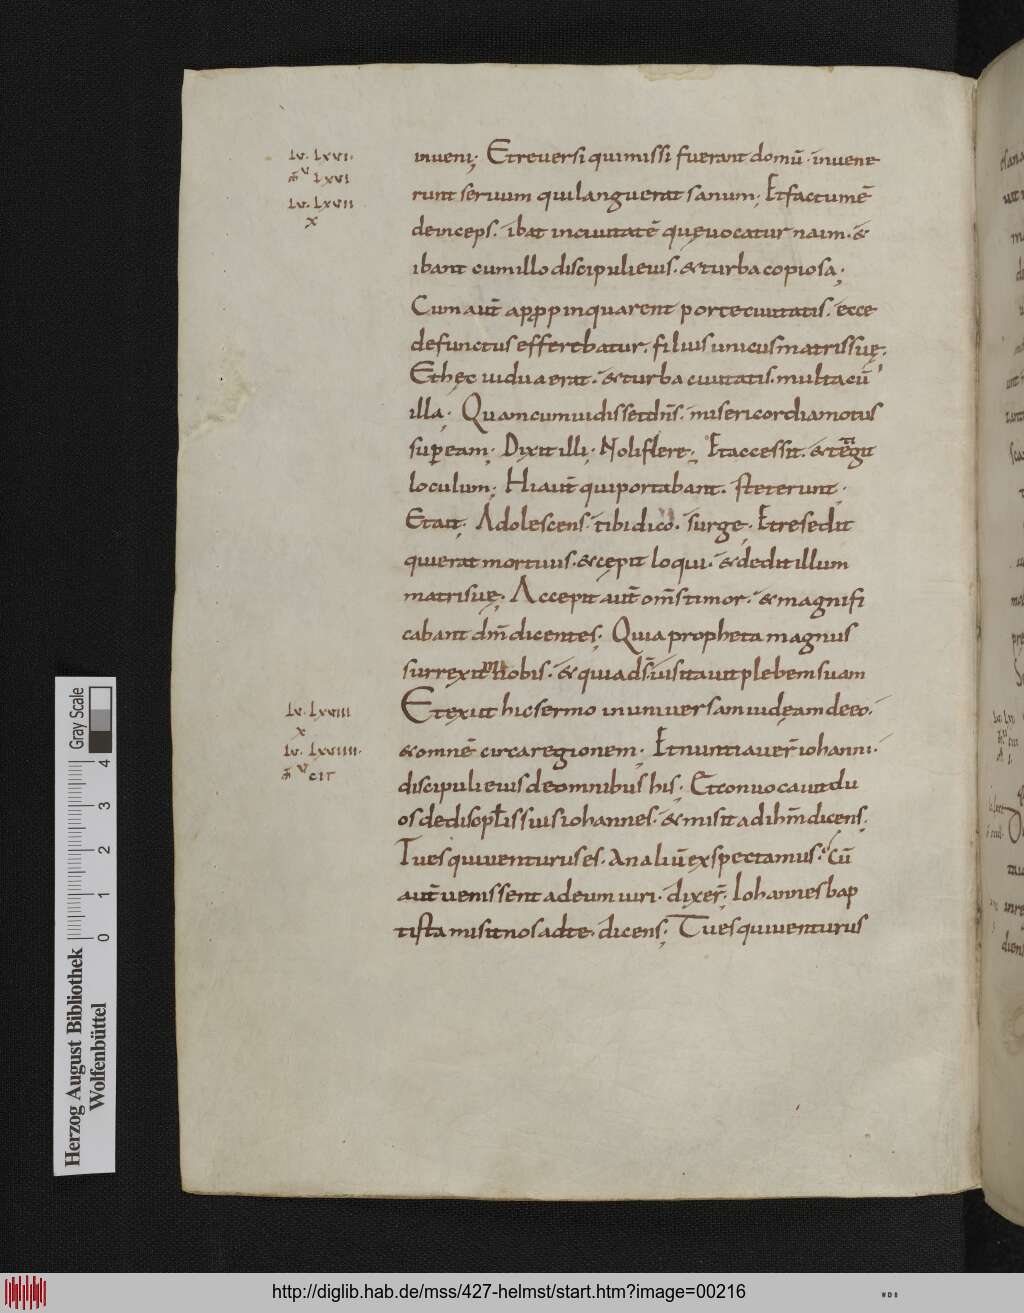 Lu. Lxvi.
Lxvi
Lu. Lxvii
x
inueni; Et reuersi qui missi fuerant domū· inuene
runt seruum qui languerat sanum; Et factum ē
deinceps· ibat in ciuitatē quę uocatur naim· &
ibant cum illo discipuli eius· & turba copiosa;
Cum aut̄ appropinquarent porte ciuitatis· ecce
defunctus efferebatur· filius unicus matris suę·
Et hęc uidua erat· & turba ciuitatis multa cū
illa; Quam cum uidisset dn̄s· misericordia motus
sup eam; Dixit illi; Noli flere; Et accessit· & tetigit
loculum; Hi aut̄ qui portabant· steterunt;
Et ait; Adolescens· tibi dico· surge; Et resedit
qui erat mortuus· & cępit loqui· & dedit illum
matri suę; Accepit aut̄ om̄s timor· & magnifi
cabant dm̄ dicentes; Quia propheta magnus
surrexit in nobis· & quia ds̄ uisitauit plebem suam
Lu. Lxviii
x
Lu. Lxviiii.
cii
Et exiit hic sermo in uniuersam iudęam de eo·
& omnē circa regionem; Et nuntiauer̄ iohanni·
discipuli eius de omnibus his; Et conuocauit du
os de discipl̄is suis iohannes· & misit ad ihm̄ dicens;
Tu es qui uenturus es· an aliū exspectamus; Cū
aut̄ uenissent ad eum uiri· dixer̄; Iohannes bap
tista misit nos ad te· dicens; Tu es qui uenturus
Gray Scale
0 1 2 3 4
Herzog August Bibliothek
Wolfenbüttel
http://diglib.hab.de/mss/427-helmst/start.htm?image=00216